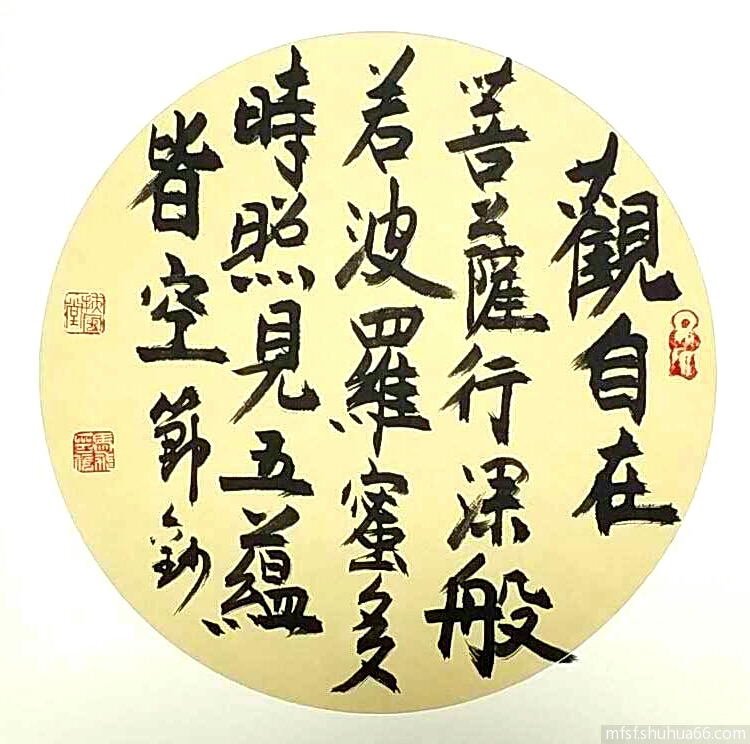 觀自在
菩薩行深般
若波羅蜜多
時照見五蘊
皆空 節錄
mfsfshuhua66.com